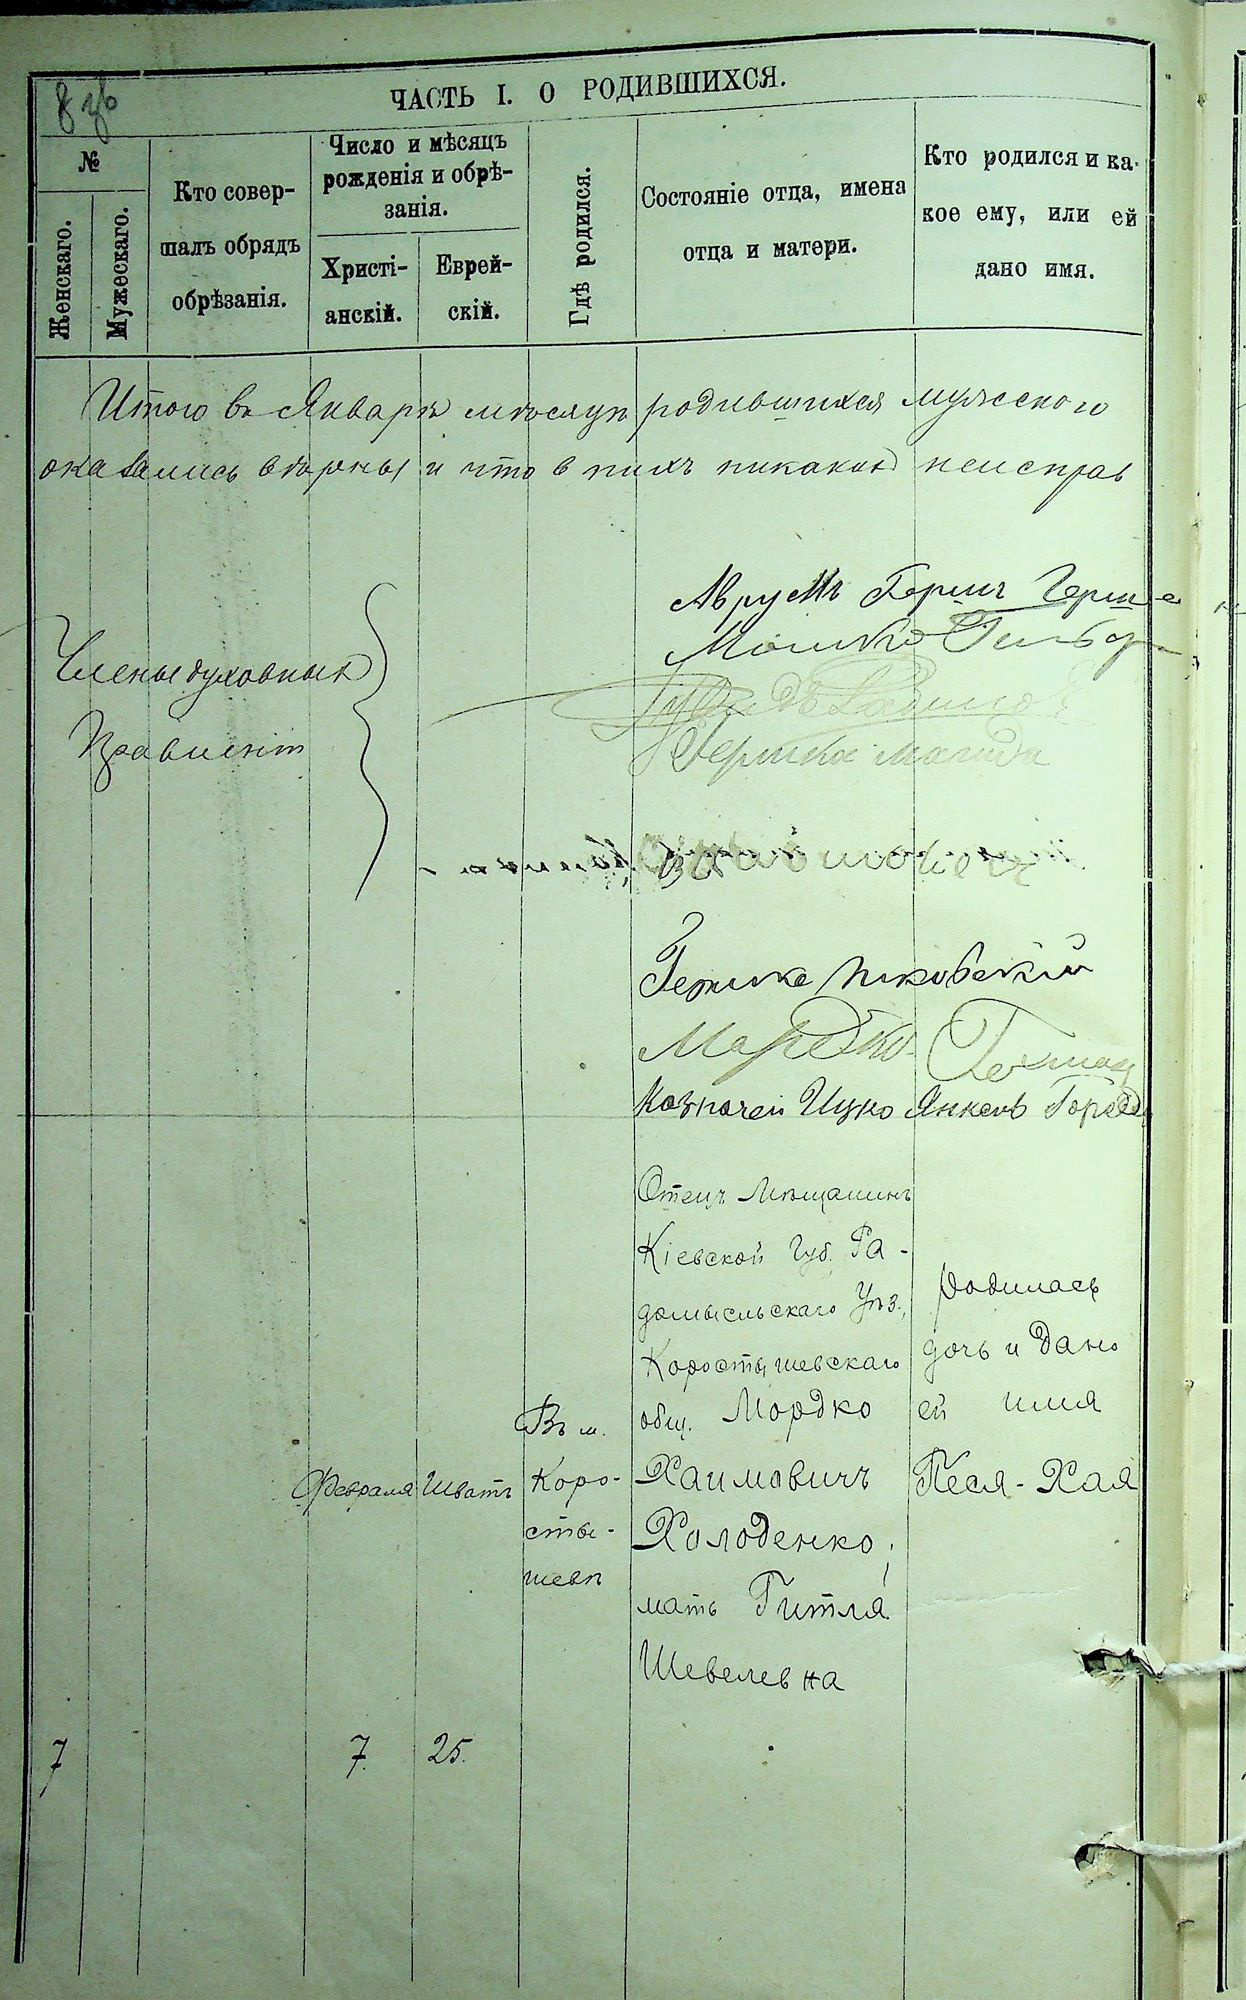 8 зв
ЧАСТЬ I. О РОДИВШИХСЯ.
№
Женскаго.
Мужескаго.
Кто совер-
шалъ обрядъ
обрѣзанія.
Число и мѣсяцъ
рожденія и обрѣ-
занія.
Христі-
анскій.
Еврей-
скій.
Гдѣ родился.
Состояніе отца, имена
отца и матери.
Кто родился и ка-
кое ему, или ей
дано имя.
Итого въ Январѣ мѣсяцѣ родившихся мужескаго
оказались вѣрны и что в нихъ никакихъ неисправ
Члены духовныхъ
Правленій
Аврумъ Герш
Мошко
Гершко
Гершко
Мордко
Казначей Ицко Янкель
7
Февраля
7.
Шватъ
25.
Въ м.
Коро-
сты-
шевѣ
Отецъ Мѣщанинъ
Кіевской Губ. Ра-
домысльскаго Уѣз.,
Коростышевскаго
общ. Мордко
Хаимовичъ
Холоденко,
мать Гитля
Шевелевна
родилась
дочь и дано
ей имя
Песя-Хая